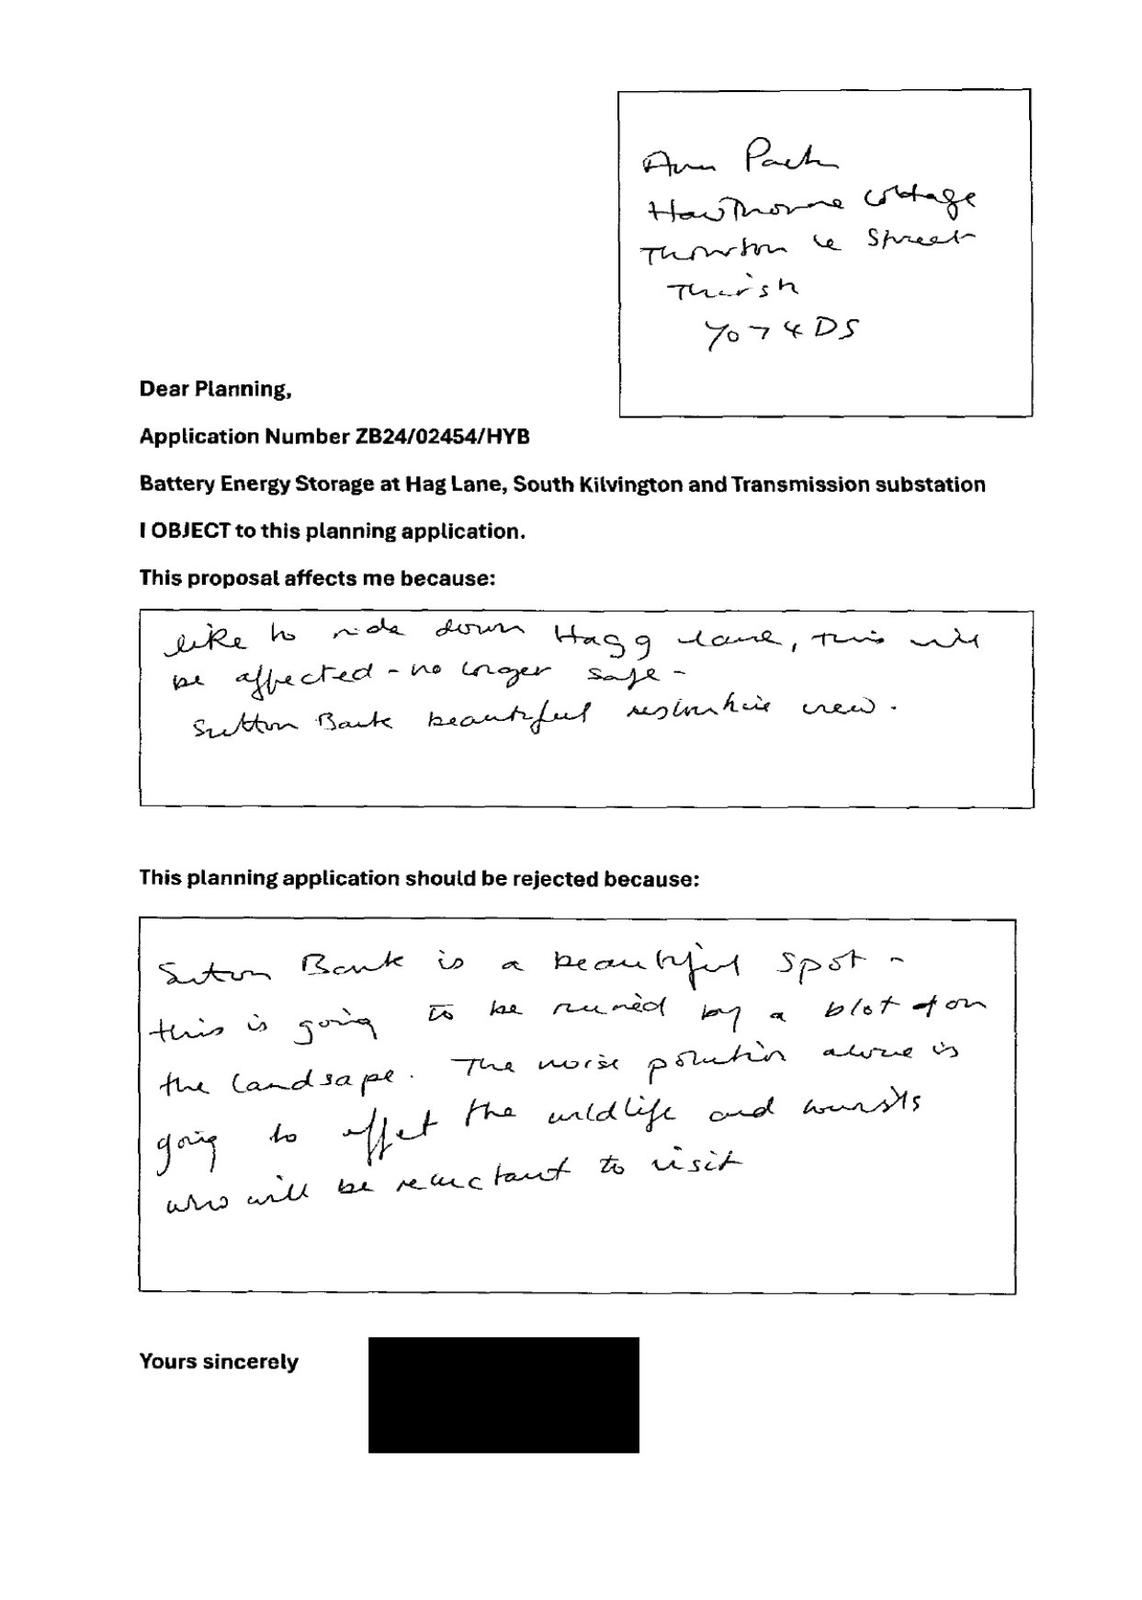 Ann
Hawthorne Cottage
Thornton le Street
Thirsk
YO7 4DS
Dear Planning,
Application Number ZB24/02454/HYB
Battery Energy Storage at Hag Lane, South Kilvington and Transmission substation
I OBJECT to this planning application.
This proposal affects me because:
like to ride down Hagg lane, this will
be affected - no longer safe -
Sutton Bank beautiful view.
This planning application should be rejected because:
Sutton Bank is a beautiful spot -
this is going to be ruined by a blot on
the landsape. The noise polution alone is
going to affet the wildlife and tourists
who will be reluctant to visit
Yours sincerely